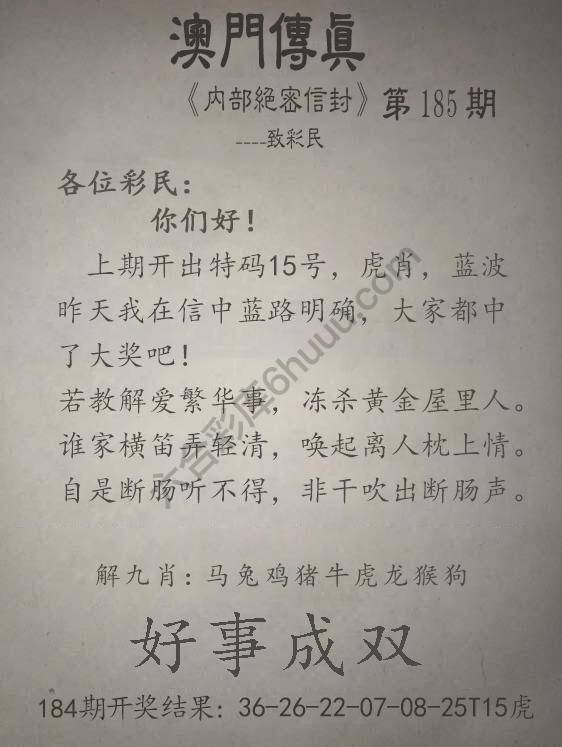 澳門傳眞
《内部絕密信封》第185期
----致彩民
各位彩民：
你们好！
上期开出特码15号，虎肖，蓝波
昨天我在信中蓝路明确，大家都中
了大奖吧！
若教解爱繁华事，冻杀黄金屋里人。
谁家横笛弄轻清，唤起离人枕上情。
自是断肠听不得，非干吹出断肠声。
解九肖：马兔鸡猪牛虎龙猴狗
好事成双
184期开奖结果：36-26-22-07-08-25T15虎
六合彩库6huuu.com